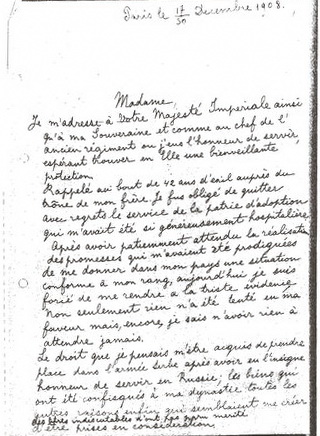 Paris le 17/30 Decembre 1908.
Madame,
Je m'adresse à Votre Majesté Imperiale ainsi
qu'à ma Souveraine et comme au chef de l'
ancien régiment ou j'eus l'honneur de servir,
espérant trouver en Elle une bienveillante
protection
Rappelé au bout de 42 ans d'exil auprès du
trône de mon frère. Je fus obligé de quitter
avec regrets le service de la patrie d'adoption
qui m'avait été si généreusement hospitalière.
Après avoir patiemment attendu la réalisate
des promesses qui m'avaient été prodiguées
de me donner dans mon pays une situation
conforme à mon rang, aujourd'hui je suis
forcé de me rendre a la triste évidence
Non seulement rien n'a été tenté en ma
faveur mais, encore, je sais n'avoir rien à
attendre jamais.
Le droit que je pensais m'être acquis de prendre
place dans l'armée Serbe après avoir eu l'insigne
honneur de servir en Russie; les biens qui
ont été confisqués à ma dynastie toutes les
autres raisons enfin qui semblaient me créer
des titres indiscutables n'ont pas même mérité
d'être prises en considération.